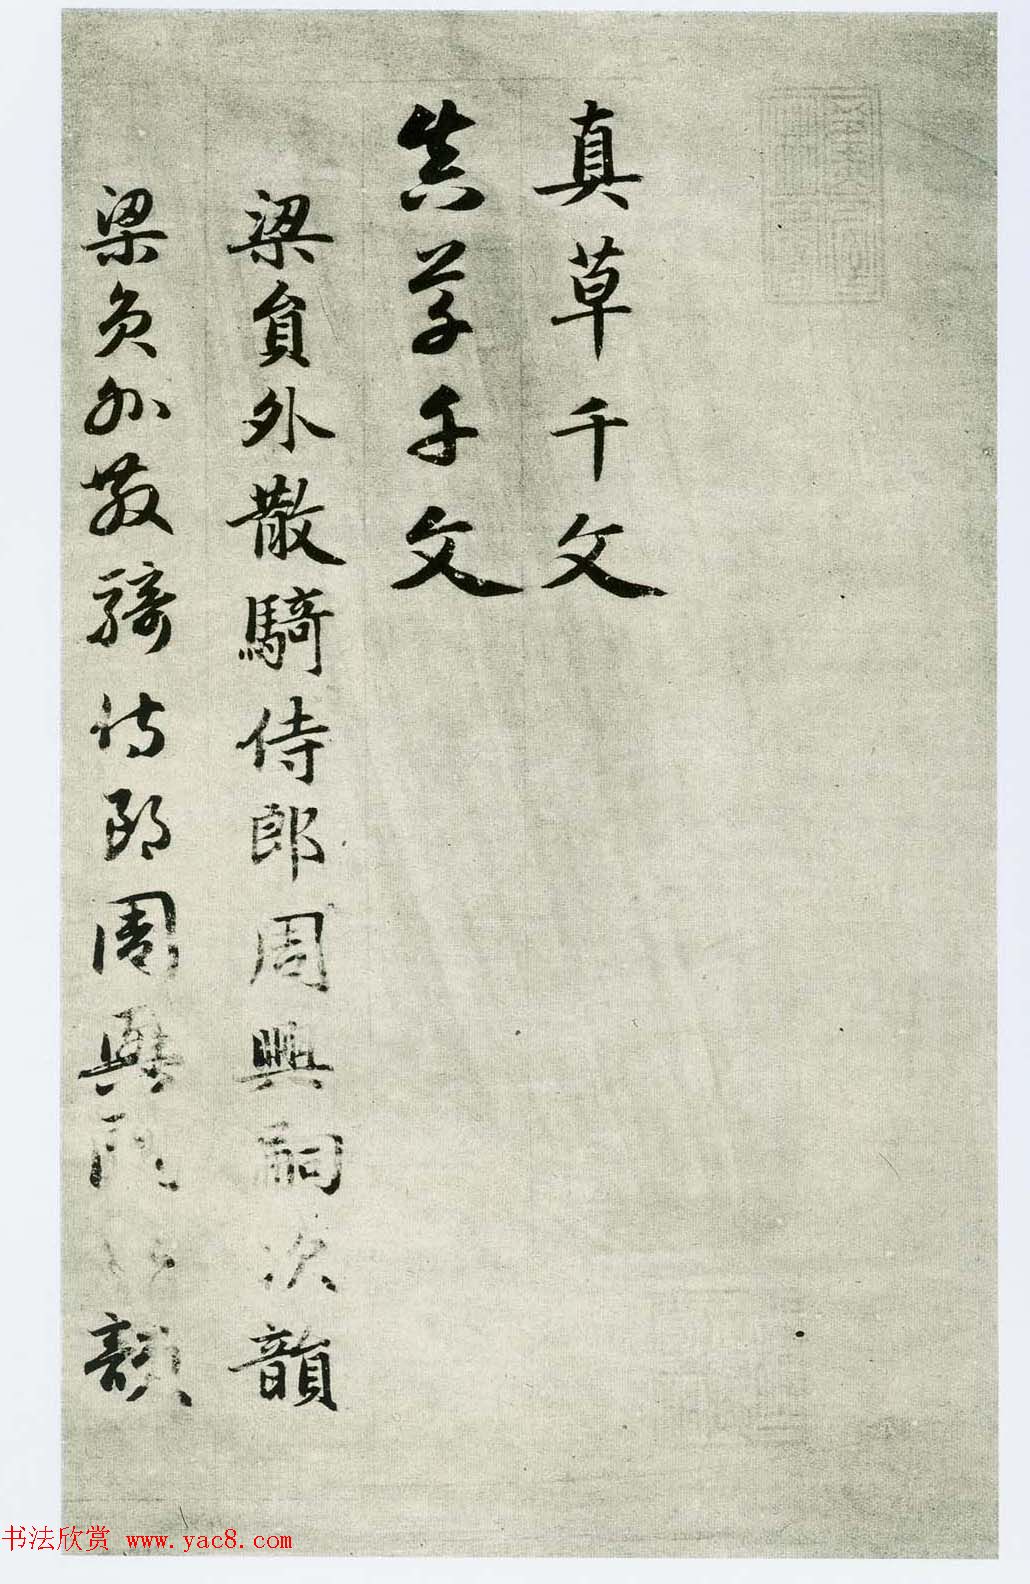 真草千文
真草千文
梁員外散騎侍郎周興嗣次韻
梁員外散騎侍郎周興嗣次韻
书法欣赏 www.yac8.com